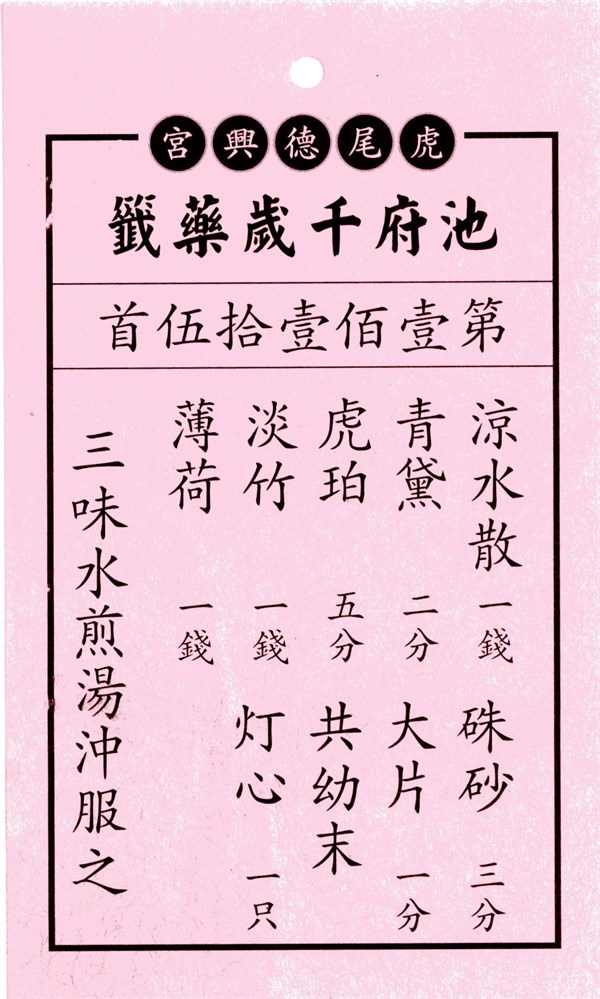 虎尾德興宮
池府千歲藥籤
第壹佰壹拾伍首
涼水散 一錢 硃砂 三分
青黛 二分 大片 一分
虎珀 五分 共幼末
淡竹 一錢 灯心 一只
薄荷 一錢
三味水煎湯沖服之